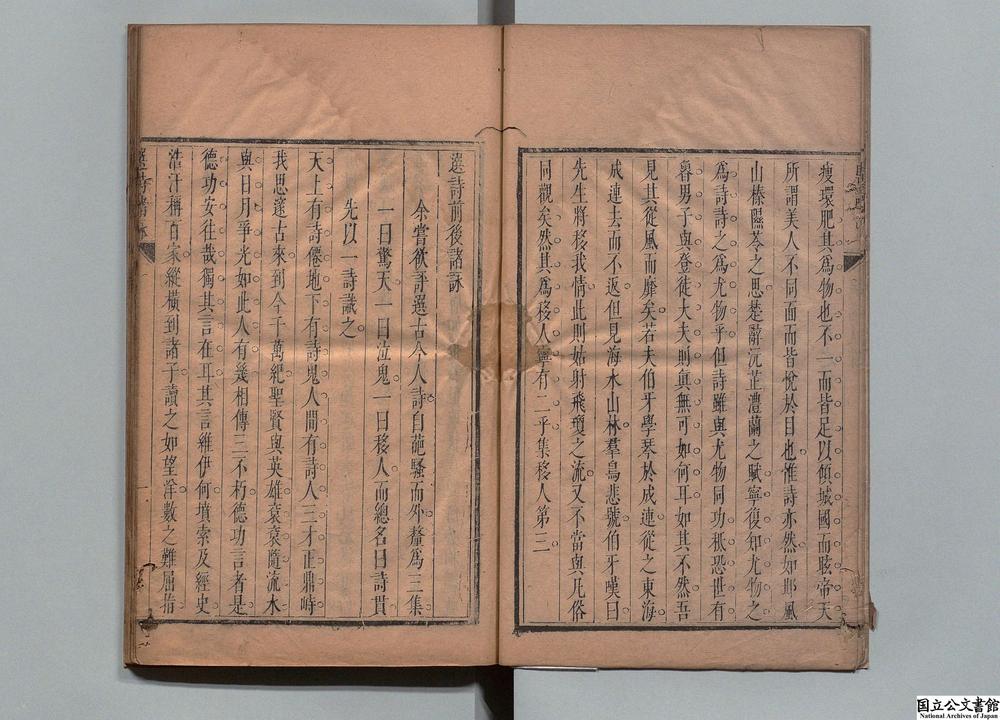 瘦環肥其爲物也不一而皆足以傾城國而眩帝天
所謂美人不同面而皆悅於目也惟詩亦然如邶風
山榛隰苓之思楚辭沅芷澧蘭之賦寧復知尤物之
爲詩詩之爲尤物乎但詩雖與尤物同功秪恐世有
魯男子與登徒大夫則眞無可如何耳如其不然吾
見其從風而靡矣若夫伯牙學琴於成連從之東海
成連去而不返但見海水山林羣鳥悲號伯牙嘆曰
先生將移我情此則姑射飛瓊之流又不當與凡俗
同觀矣然其爲移人寧有二乎集移人第三
選詩前後諸詠
余嘗欲評選古今人詩自葩騷而外釐爲三集
一曰驚天一曰泣鬼一曰移人而總名曰詩貫
先以一詩識之
天上有詩僊地下有詩鬼人間有詩人三才正鼎峙
我思邃古來到今千萬紀聖賢與英雄袞袞隨流水
與日月爭光如此人有幾相傳三不朽德功言者是
德功安往哉獨其言在耳其言維伊何墳索及經史
浩汗稱百家縱橫到諸子讀之如望洋數之難屈指
選詩諸詠
一
国立公文書館
National Archives of Japan